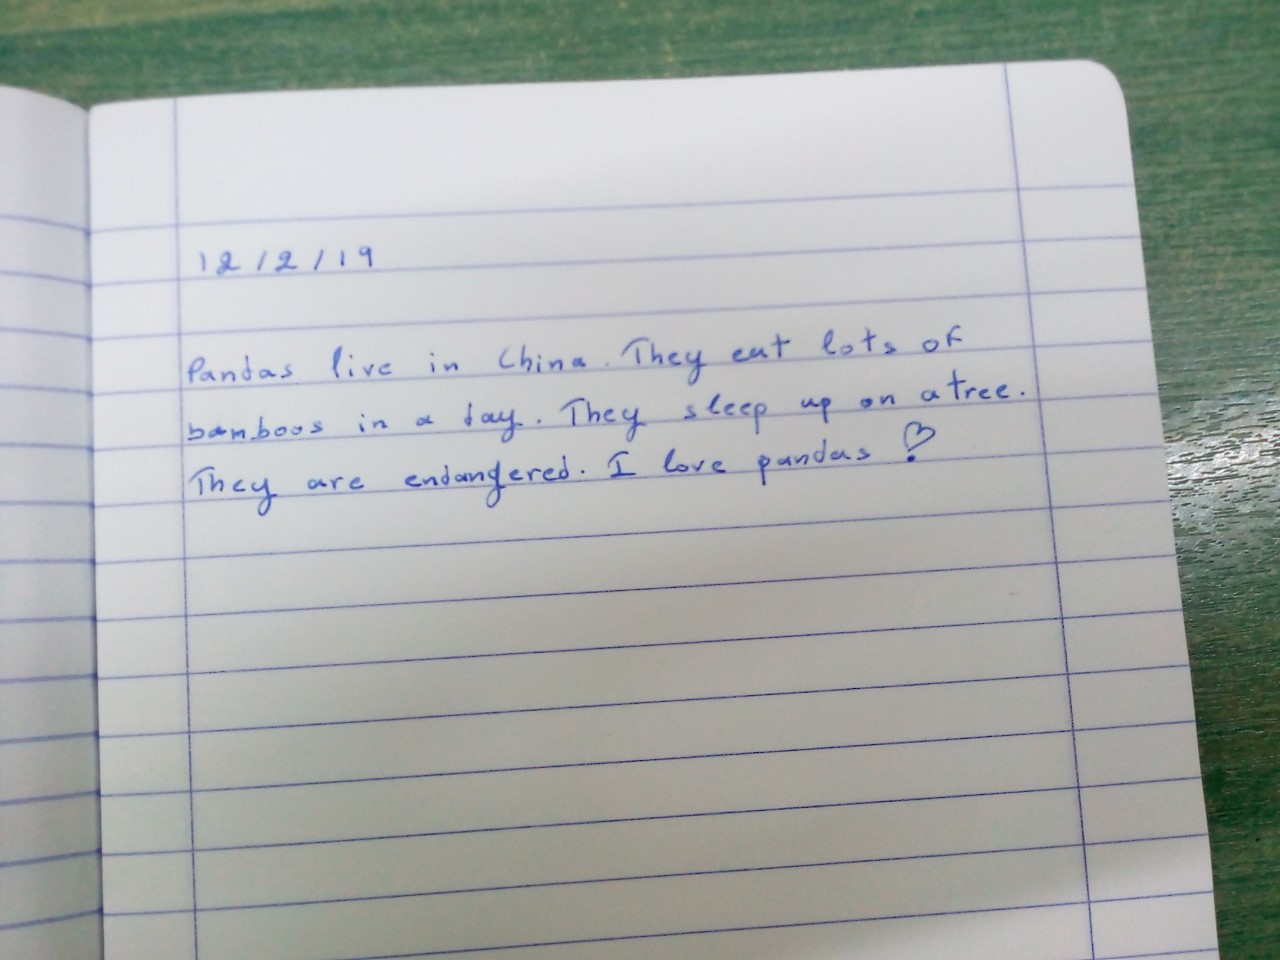 12/2/19
Pandas live in China. They eat lots of
bamboos in a day. They sleep up on a tree.
They are endangered. I love pandas